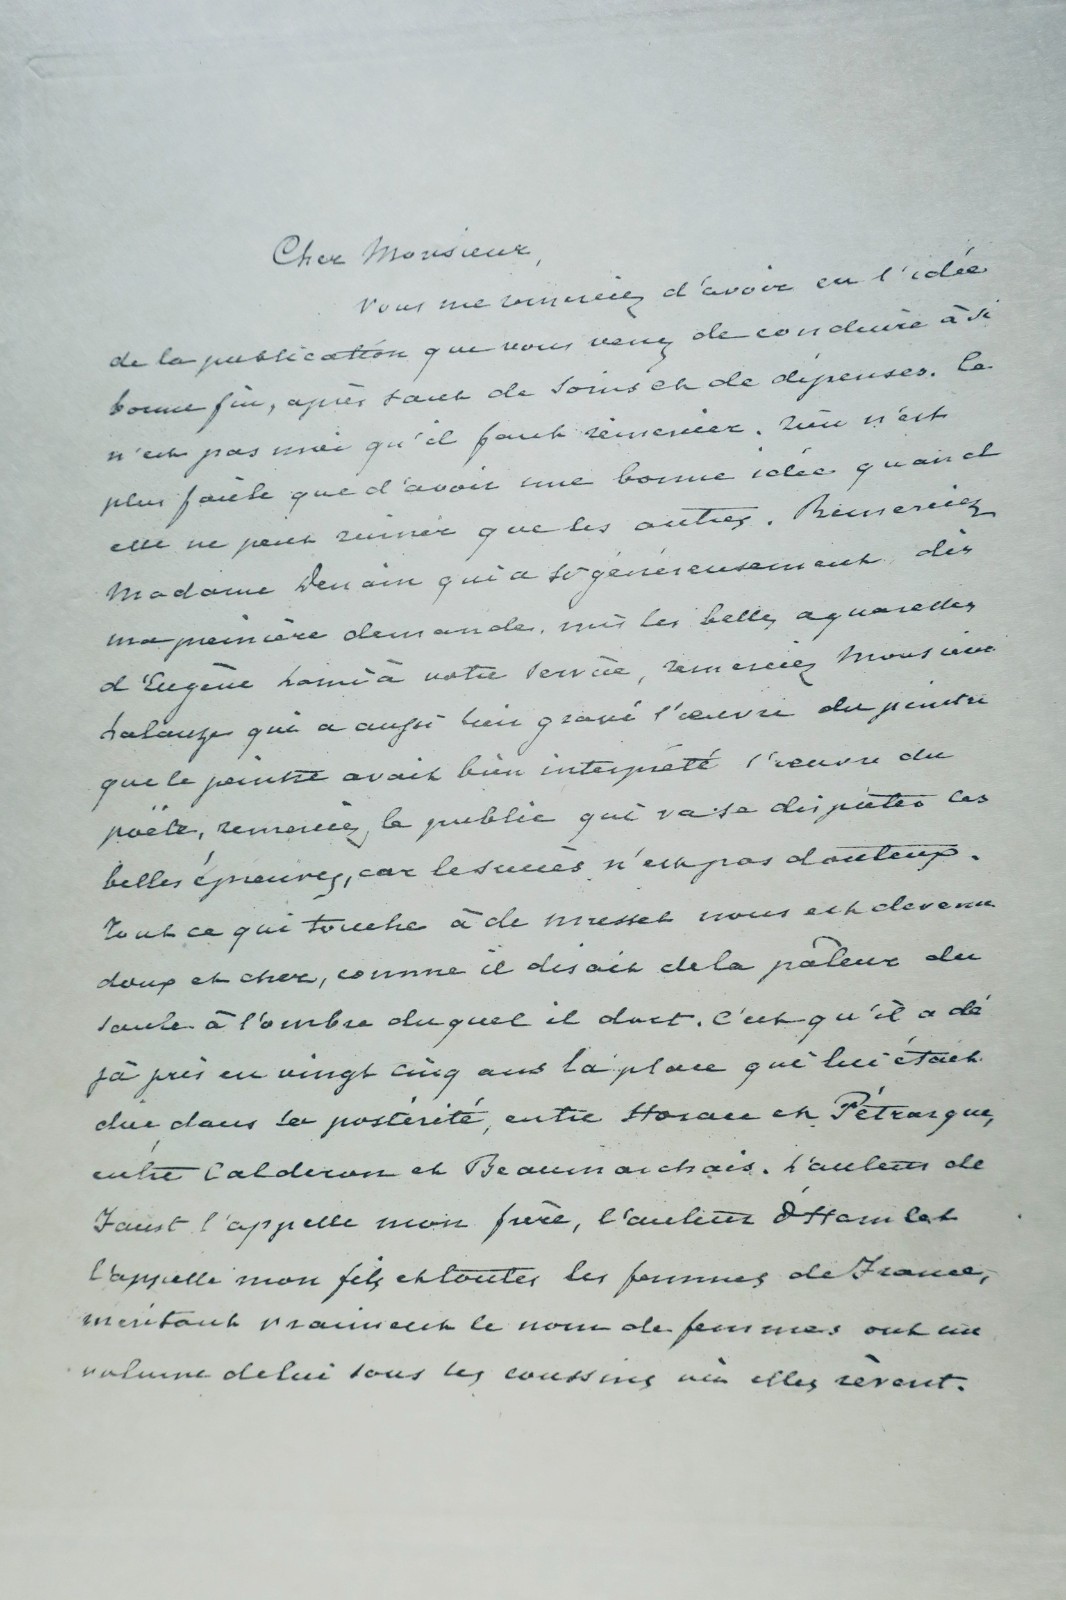 Cher Monsieur,
Vous me remerciez d'avoir eu l'idée
de la publication que vous venez de conduire à si
bonne fin, après tant de soins et de dépenses. Ce
n'est pas moi qu'il faut remercier. Rien n'est
plus facile que d'avoir une bonne idée quand
elle ne peut ruiner que les autres. Remerciez
Madame Denain qui a si généreusement, dès
ma première demande, mis les belles aquarelles
d'Eugène Lami à votre service, remerciez Monsieur
Lalauze qui a aussi bien gravé l'œuvre du peintre
que le peintre avait bien interprété l'œuvre du
poëte, remerciez le public qui va se disputer ces
belles épreuves, car le succès n'est pas douteux.
Tout ce qui touche à de Musset nous est devenu
doux et cher, comme il disait de la pâleur du
saule à l'ombre duquel il dort. C'est qu'il a dé
jà pris en vingt cinq ans la place qui lui était
due dans la postérité, entre Horace et Pétrarque,
entre Calderon et Beaumarchais. L'auteur de
Faust l'appelle mon frère, l'auteur d'Hamlet
l'appelle mon fils et toutes les femmes de France,
méritant vraiment le nom de femmes ont un
volume de lui sous les coussins où elles rêvent.